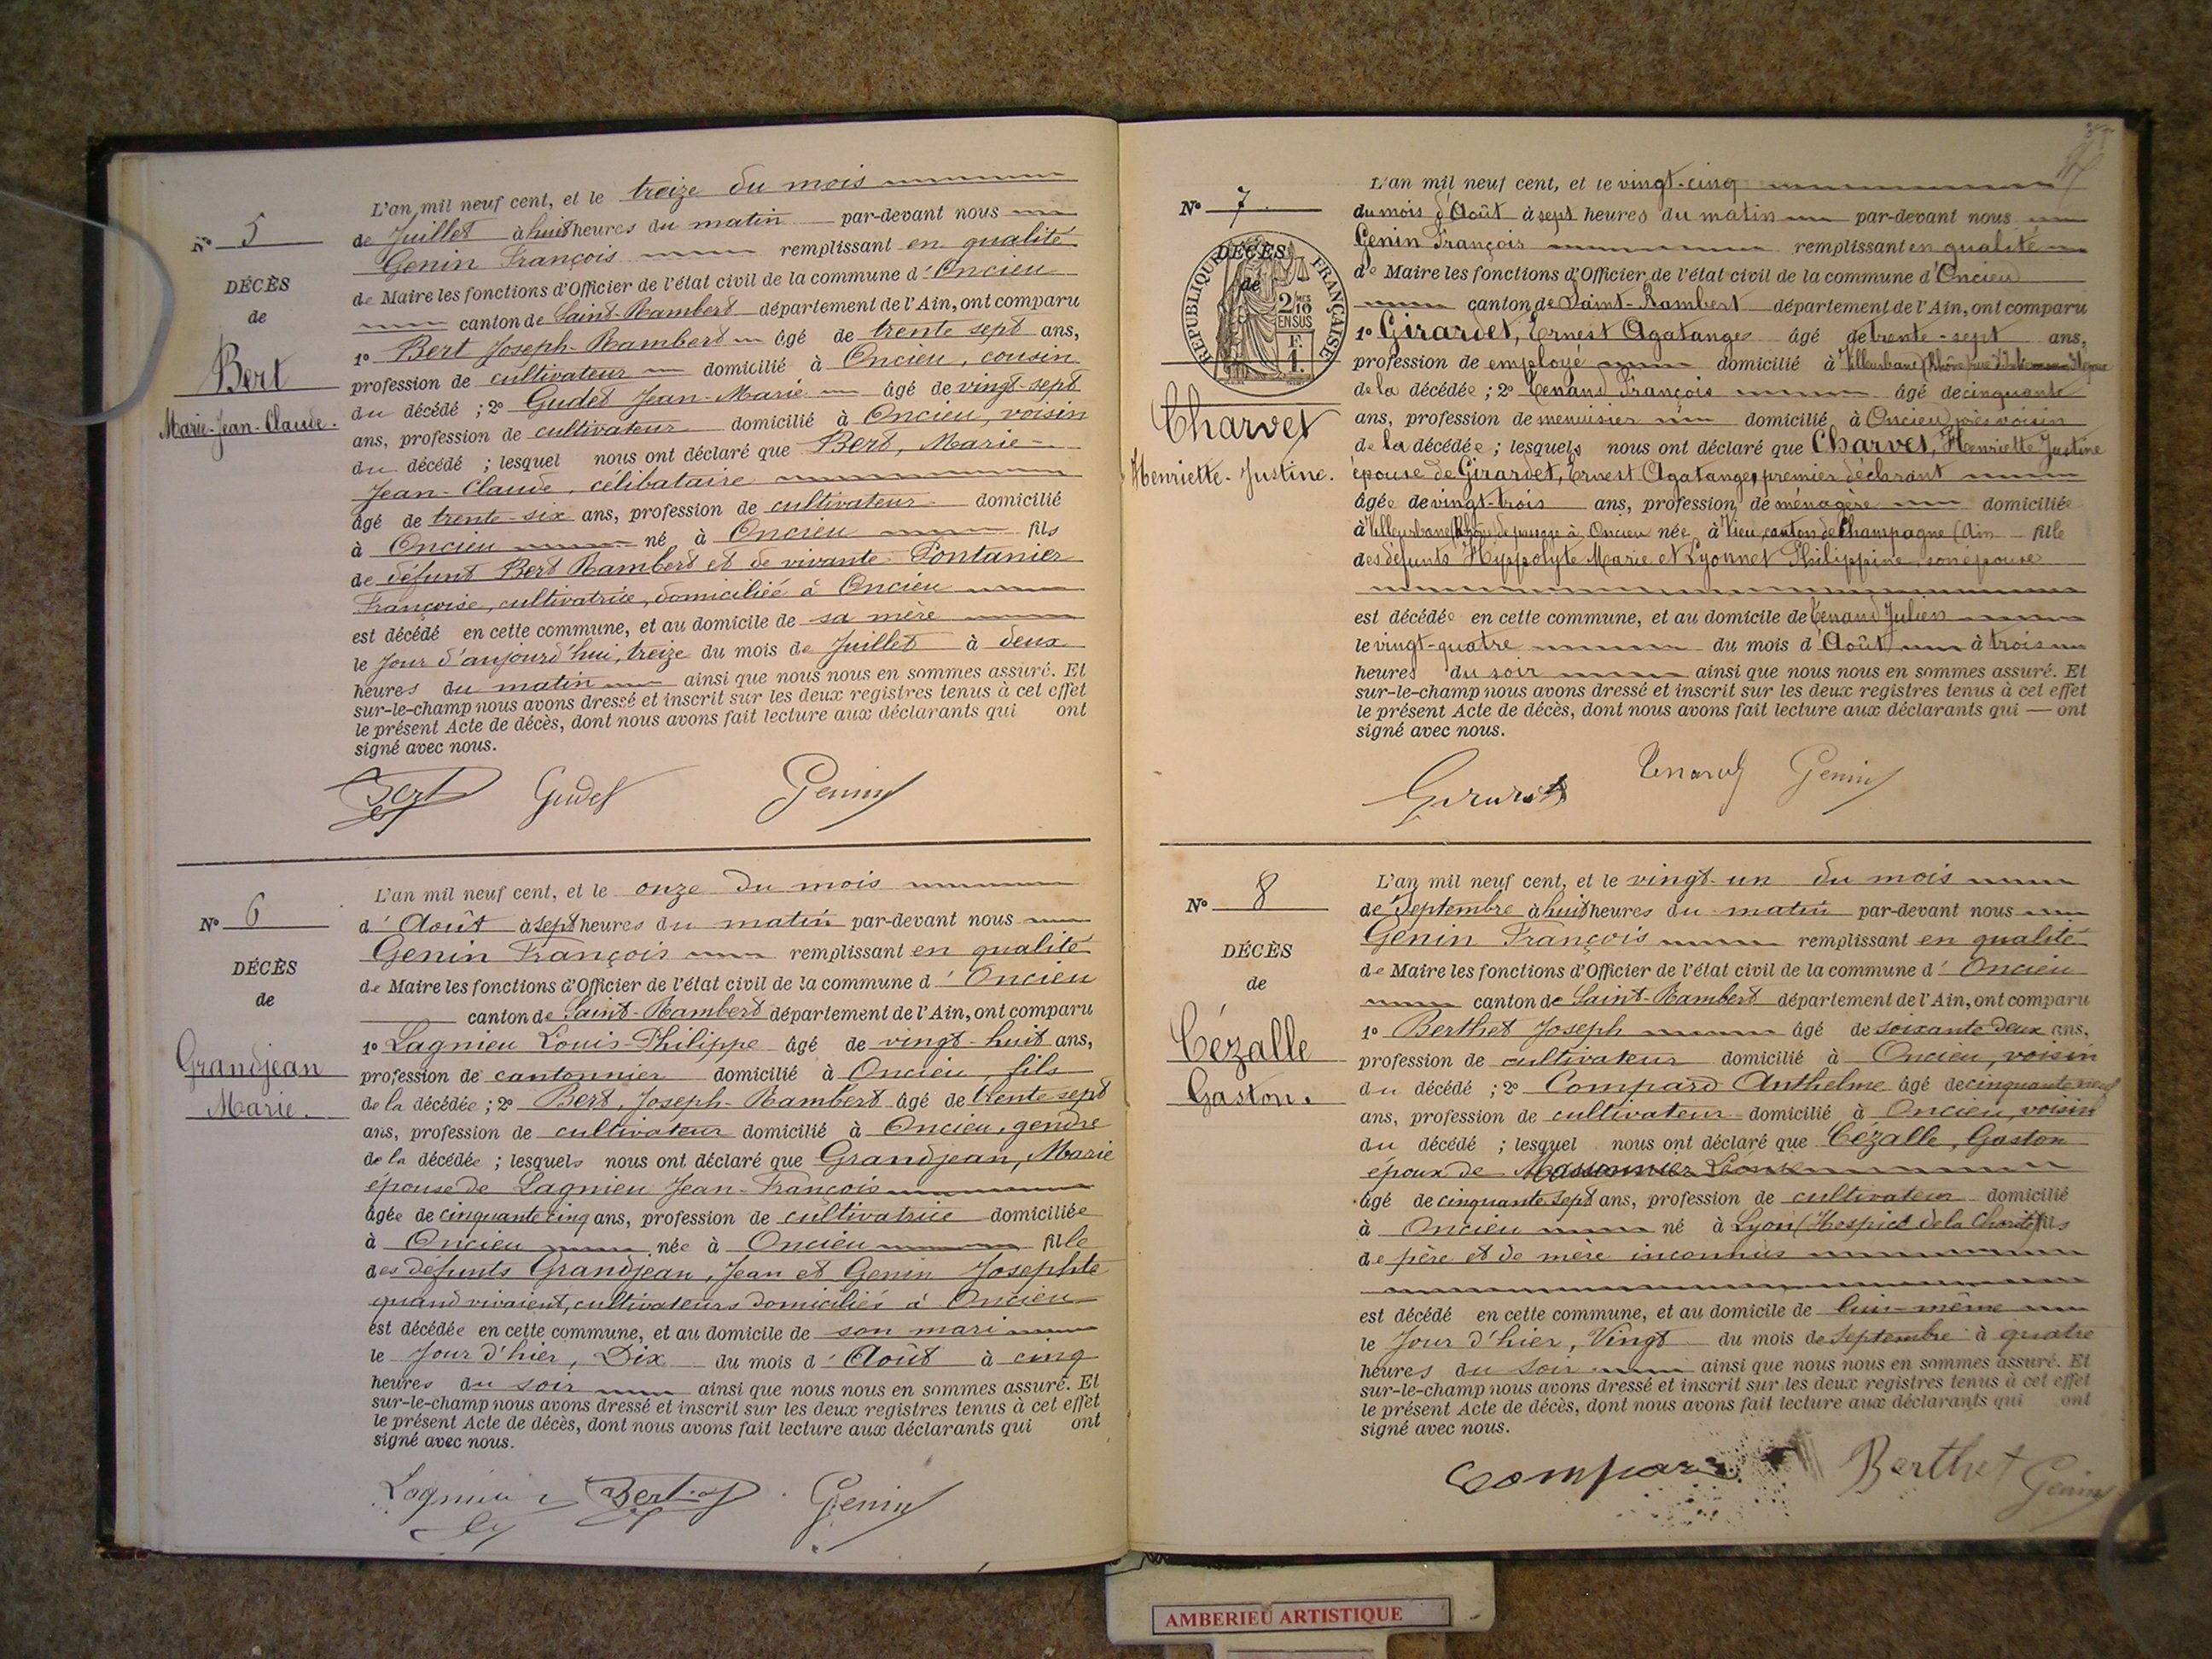 N° 5
DÉCÈS
de
Bert
Marie-Jean-Claude.
L'an mil neuf cent, et le treize du mois
de Juillet à huit heures du matin par-devant nous
Genin François remplissant en qualité
de Maire les fonctions d'Officier de l'état civil de la commune d'Oncieu
canton de Saint-Rambert département de l'Ain, ont comparu
1° Bert Joseph-Rambert âgé de trente sept ans,
profession de cultivateur domicilié à Oncieu, cousin
du décédé ; 2° Gudet Jean-Marie âgé de vingt-sept
ans, profession de cultivateur domicilié à Oncieu, voisin
du décédé ; lesquel nous ont déclaré que Bert, Marie-
Jean-Claude, célibataire
âgé de trente-six ans, profession de cultivateur domicilié
à Oncieu né à Oncieu fils
de défunt Bert Rambert et de vivante Pontanier
Françoise, cultivatrice, domiciliée à Oncieu
est décédé en cette commune, et au domicile de sa mère
le Jour d'aujourd'hui, treize du mois de Juillet à deux
heures du matin ainsi que nous nous en sommes assuré. Et
sur-le-champ nous avons dressé et inscrit sur les deux registres tenus à cet effet
le présent Acte de décès, dont nous avons fait lecture aux déclarants qui ont
signé avec nous.
Bert Gudet Genin
N° 6
DÉCÈS
de
Grandjean
Marie.
L'an mil neuf cent, et le onze du mois
d'Août à sept heures du matin par-devant nous
Genin François remplissant en qualité
de Maire les fonctions d'Officier de l'état civil de la commune d'Oncieu
canton de Saint-Rambert département de l'Ain, ont comparu
1° Lagnieu Louis-Philippe âgé de vingt-huit ans,
profession de cantonnier domicilié à Oncieu, fils
de la décédée ; 2° Bert, Joseph-Rambert âgé de trente sept
ans, profession de cultivateur domicilié à Oncieu, gendre
de la décédée ; lesquels nous ont déclaré que Grandjean, Marie
épouse de Lagnieu Jean-François
âgée de cinquante cinq ans, profession de cultivatrice domiciliée
à Oncieu née à Oncieu fille
des défunts Grandjean, Jean et Genin Josephte
quand vivaient, cultivateurs domiciliés à Oncieu
est décédée en cette commune, et au domicile de son mari
le Jour d'hier, Dix du mois d'Août à cinq
heures du soir ainsi que nous nous en sommes assuré. Et
sur-le-champ nous avons dressé et inscrit sur les deux registres tenus à cet effet
le présent Acte de décès, dont nous avons fait lecture aux déclarants qui ont
signé avec nous.
Lagnieu Bert Genin
N° 7
DÉCÈS
de
RÉPUBLIQUE FRANÇAISE
2 MES 10 EN SUS
F. 1.
Charvet
Henriette-Justine.
L'an mil neuf cent, et le vingt-cinq
du mois d'Août à sept heures du matin par-devant nous
Genin François remplissant en qualité
de Maire les fonctions d'Officier de l'état civil de la commune d'Oncieu
canton de Saint-Rambert département de l'Ain, ont comparu
1° Girardet, Ernest Agatange âgé de trente-sept ans,
profession de employé domicilié à Villeurbane (Rhône)
de la décédée ; 2° Tenand François âgé de cinquante
ans, profession de menuisier domicilié à Oncieu voisin
de la décédée ; lesquels nous ont déclaré que Charvet, Henriette Justine
épouse de Girardet, Ernest Agatange, premier déclarant
âgée de vingt-trois ans, profession de ménagère domiciliée
à Villeurbane (Rhône) de passage à Oncieu née à Vieu, canton de Champagne (Ain fille
des défunts Hyppolyte Marie et Lyonnet Philippine, son épouse
est décédée en cette commune, et au domicile de Tenand Julien
le vingt-quatre du mois d'Août à trois
heures du soir ainsi que nous nous en sommes assuré. Et
sur-le-champ nous avons dressé et inscrit sur les deux registres tenus à cet effet
le présent Acte de décès, dont nous avons fait lecture aux déclarants qui — ont
signé avec nous.
Girardet Tenand Genin
N° 8
DÉCÈS
de
Cézalle
Gaston.
L'an mil neuf cent, et le vingt-un du mois
de Septembre à huit heures du matin par-devant nous
Genin François remplissant en qualité
de Maire les fonctions d'Officier de l'état civil de la commune d'Oncieu
canton de Saint-Rambert département de l'Ain, ont comparu
1° Berthet Joseph âgé de soixante deux ans,
profession de cultivateur domicilié à Oncieu, voisin
du décédé ; 2° Compard Anthelme âgé de cinquante neuf
ans, profession de cultivateur domicilié à Oncieu, voisin
du décédé ; lesquel nous ont déclaré que Cézalle, Gaston
époux de
âgé de cinquante sept ans, profession de cultivateur domicilié
à Oncieu né à Lyon (Hospice de la Charité) fils
de père et de mère inconnus
est décédé en cette commune, et au domicile de lui-même
le Jour d'hier, Vingt du mois de Septembre à quatre
heures du soir ainsi que nous nous en sommes assuré. Et
sur-le-champ nous avons dressé et inscrit sur les deux registres tenus à cet effet
le présent Acte de décès, dont nous avons fait lecture aux déclarants qui ont
signé avec nous.
Compard Berthet Genin
AMBERIEU ARTISTIQUE